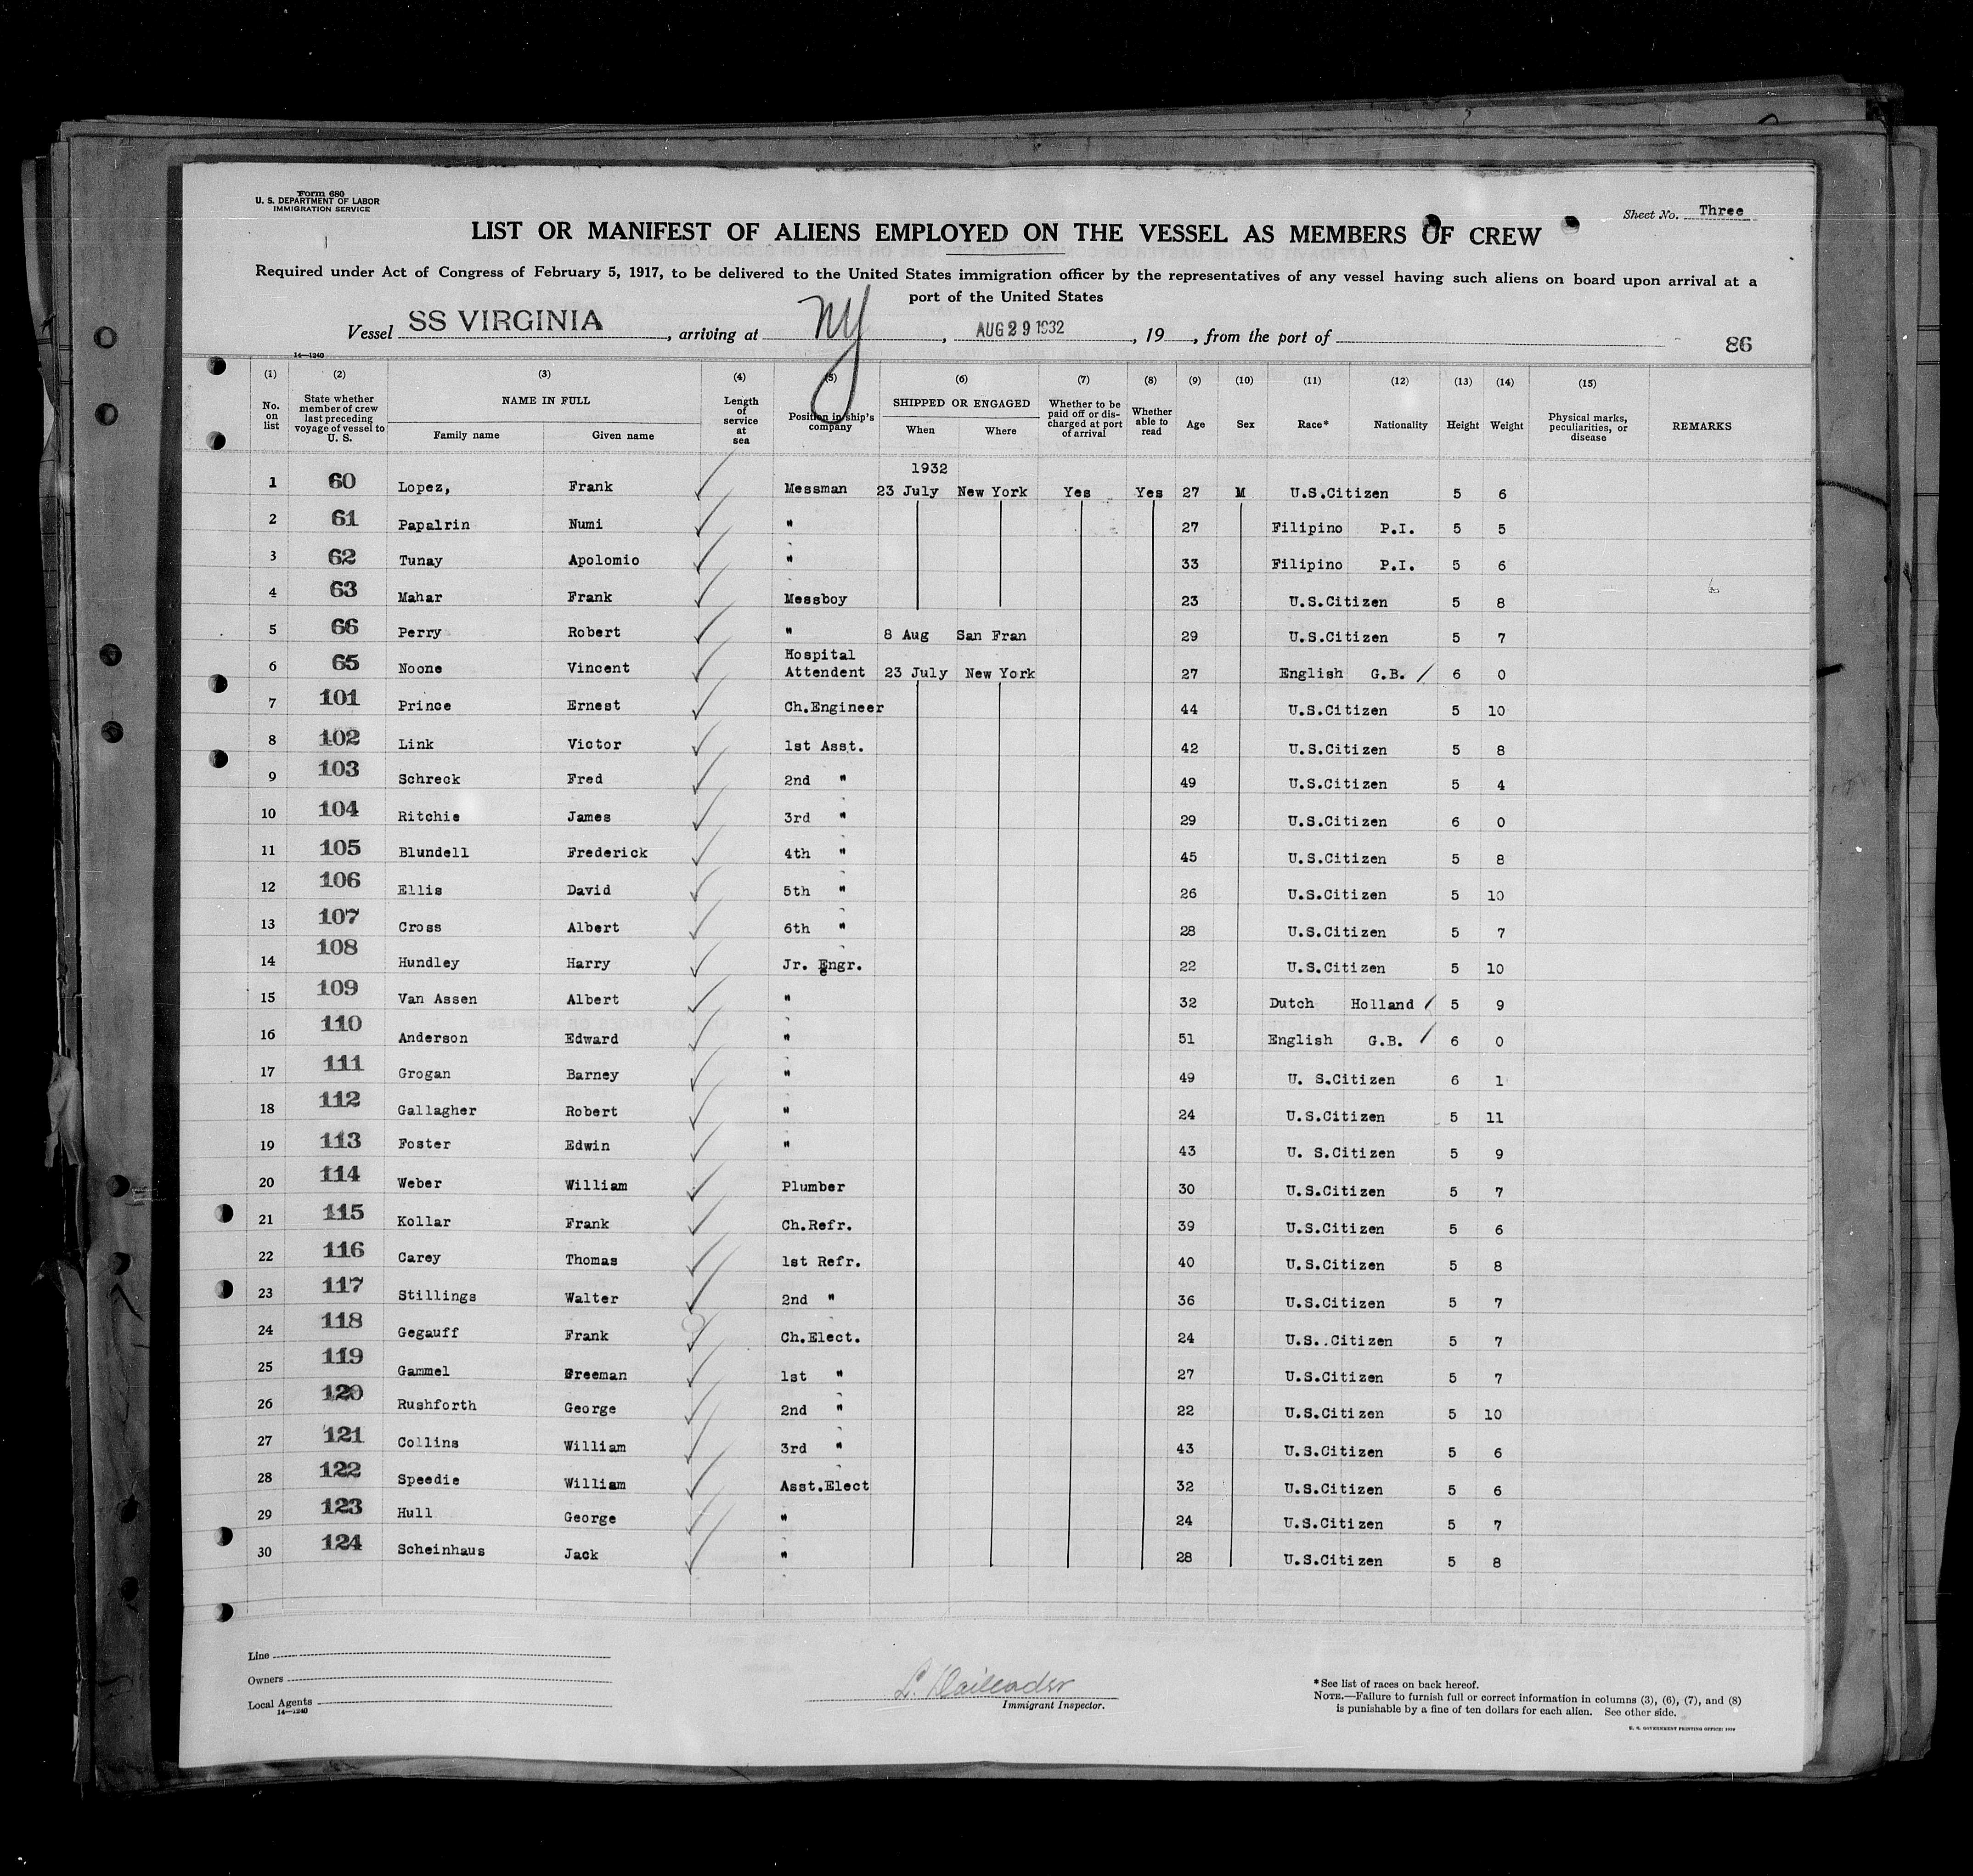 Form 680
U. S. DEPARTMENT OF LABOR
IMMIGRATION SERVICE
Sheet No. Three
LIST OR MANIFEST OF ALIENS EMPLOYED ON THE VESSEL AS MEMBERS OF CREW
Required under Act of Congress of February 5, 1917, to be delivered to the United States immigration officer by the representatives of any vessel having such aliens on board upon arrival at a
port of the United States
Vessel SS VIRGINIA, arriving at NY, AUG 29 1932, 19, from the port of
86
14—1240
(1) (2) (3) (4) (5) (6) (7) (8) (9) (10) (11) (12) (13) (14) (15)
No. on list
State whether member of crew last preceding voyage of vessel to U. S.
NAME IN FULL
Family name Given name
Length of service at sea
Position in ship's company
SHIPPED OR ENGAGED
When Where
Whether to be paid off or discharged at port of arrival
Whether able to read
Age Sex Race* Nationality Height Weight
Physical marks, peculiarities, or disease
REMARKS
1932
1 60 Lopez, Frank Messman 23 July New York Yes Yes 27 M U.S.Citizen 5 6
2 61 Papalrin Numi " 27 Filipino P.I. 5 5
3 62 Tunay Apolomio " 33 Filipino P.I. 5 6
4 63 Mahar Frank Messboy 23 U.S.Citizen 5 8
5 66 Perry Robert " 8 Aug San Fran 29 U.S.Citizen 5 7
6 65 Noone Vincent Hospital Attendent 23 July New York 27 English G.B. / 6 0
7 101 Prince Ernest Ch.Engineer 44 U.S.Citizen 5 10
8 102 Link Victor 1st Asst. 42 U.S.Citizen 5 8
9 103 Schreck Fred 2nd " 49 U.S.Citizen 5 4
10 104 Ritchie James 3rd " 29 U.S.Citizen 6 0
11 105 Blundell Frederick 4th " 45 U.S.Citizen 5 8
12 106 Ellis David 5th " 26 U.S.Citizen 5 10
13 107 Cross Albert 6th " 28 U.S.Citizen 5 7
14 108 Hundley Harry Jr. Engr. 22 U.S.Citizen 5 10
15 109 Van Assen Albert " 32 Dutch Holland / 5 9
16 110 Anderson Edward " 51 English G.B. / 6 0
17 111 Grogan Barney " 49 U. S.Citizen 6 1
18 112 Gallagher Robert " 24 U.S.Citizen 5 11
19 113 Foster Edwin " 43 U. S.Citizen 5 9
20 114 Weber William Plumber 30 U.S.Citizen 5 7
21 115 Kollar Frank Ch.Refr. 39 U.S.Citizen 5 6
22 116 Carey Thomas 1st Refr. 40 U.S.Citizen 5 8
23 117 Stillings Walter 2nd " 36 U.S.Citizen 5 7
24 118 Gegauff Frank Ch.Elect. 24 U.S..Citizen 5 7
25 119 Gammel Freeman 1st " 27 U.S.Citizen 5 7
26 120 Rushforth George 2nd " 22 U.S.Citizen 5 10
27 121 Collins William 3rd " 43 U.S.Citizen 5 6
28 122 Speedie William Asst.Elect 32 U.S.Citizen 5 6
29 123 Hull George " 24 U.S.Citizen 5 7
30 124 Scheinhaus Jack " 28 U.S.Citizen 5 8
Line
Owners
Local Agents
14—1240
Immigrant Inspector.
*See list of races on back hereof.
NOTE.—Failure to furnish full or correct information in columns (3), (6), (7), and (8)
is punishable by a fine of ten dollars for each alien. See other side.
U. S. GOVERNMENT PRINTING OFFICE: